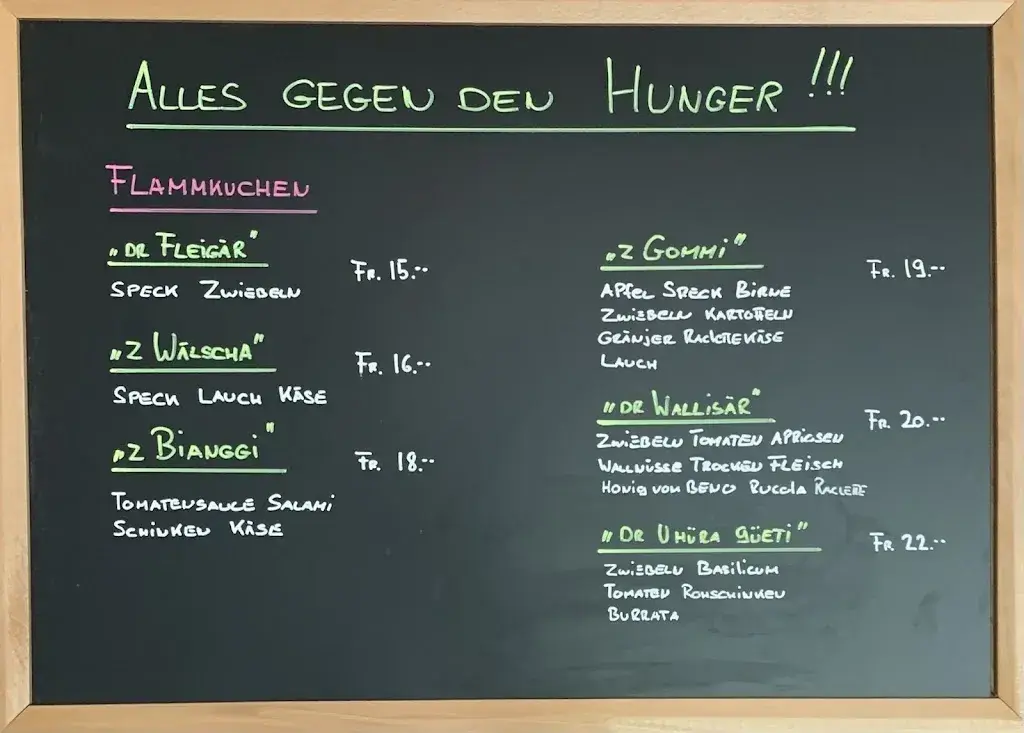 ALLES GEGEN DEN HUNGER !!!
FLAMMKUCHEN
„DR FLEIGÄR"
FR. 15.--
SPECK ZWIEBELN
„Z WÄLSCHA"
FR. 16.--
SPECK LAUCH KÄSE
„Z BIANGGI"
FR. 18.--
TOMATENSAUCE SALAMI
SCHINKEN KÄSE
„Z GOMMI"
FR. 19.--
APFEL SPECK BIRNE
ZWIEBELN KARTOFFELN
GRÄNJER RACLETTEKÄSE
LAUCH
„DR WALLISÄR"
FR. 20.--
ZWIEBELN TOMATEN APRIGSEN
WALLNÜSSE TROCKEN FLEISCH
HONIG VON BENO RUCOLA RACLETTE
„DR UHÜRA GÜETI"
FR. 22.--
ZWIEBELN BASILICUM
TOMATEN ROHSCHINKEN
BURRATA